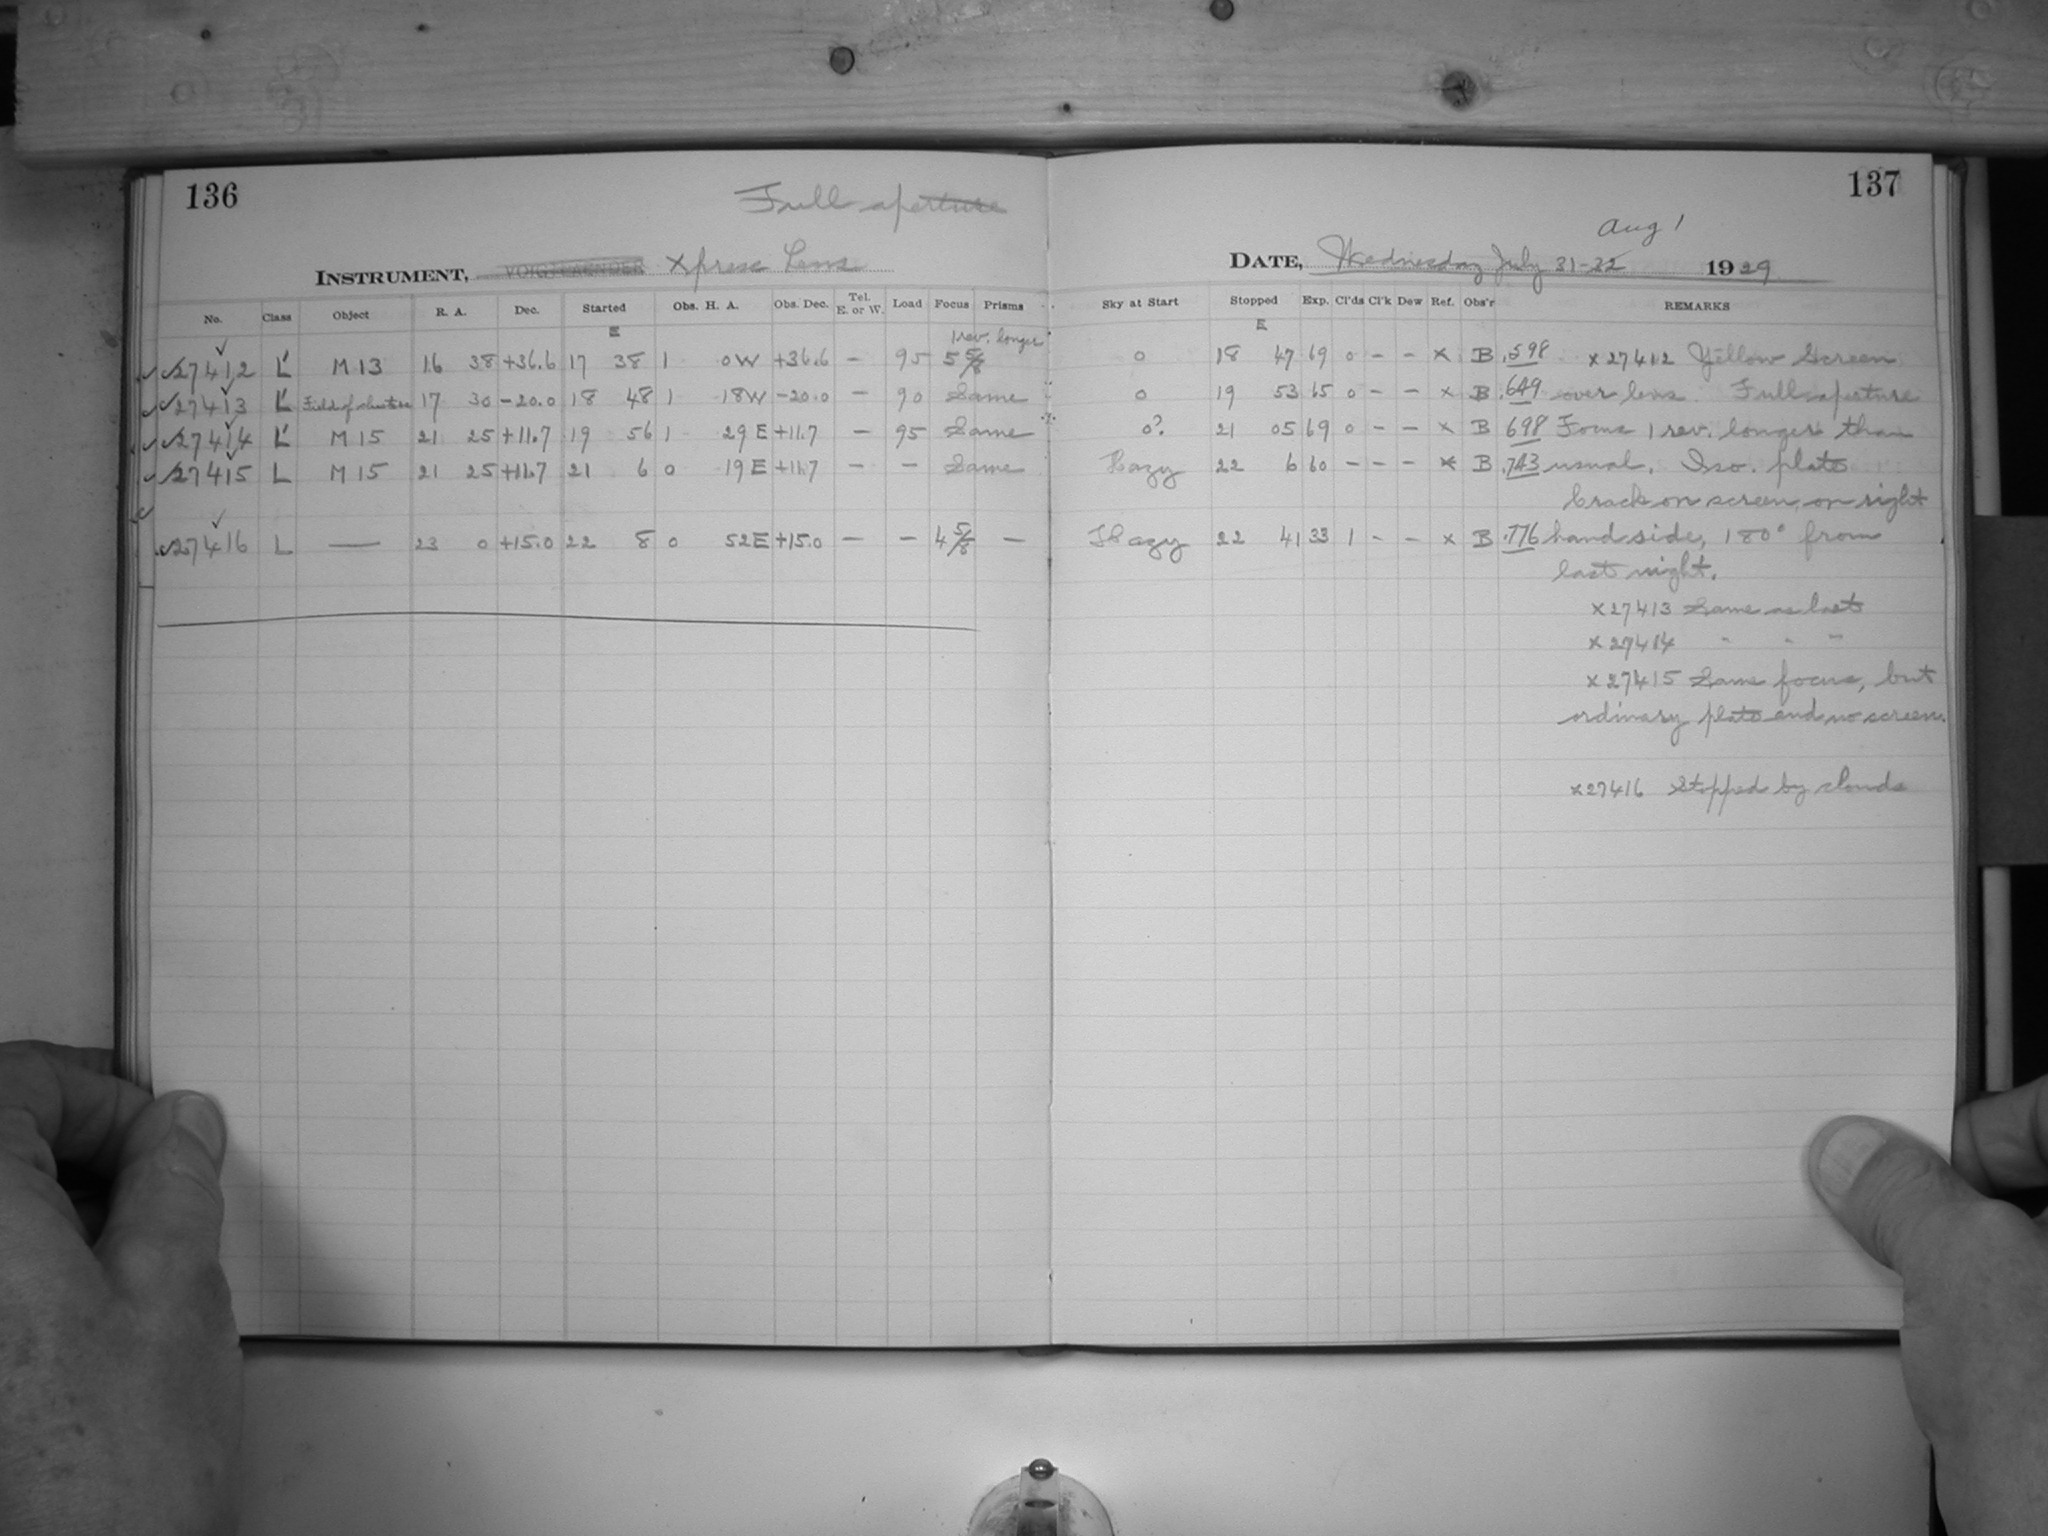 136
Full aperture
INSTRUMENT, VOIGTLAENDER Xpress Lens
No. Class Object R. A. Dec. Started Obs. H. A. Obs. Dec. Tel. E. or W. Load Focus Prisms
E 1 rev. longer
27412 L' M 13 16 38 +36.6 17 38 1 0W +36.6 – 95 5 5/8
27413 L' Field of clusters 17 30 -20.0 18 48 1 18W -20.0 – 90 Same
27414 L' M 15 21 25 +11.7 19 56 1 29 E +11.7 – 95 Same
27415 L M 15 21 25 +11.7 21 6 0 19 E +11.7 – – Same
27416 L — 23 0 +15.0 22 8 0 52E +15.0 – – 4 5/8 –
137
Aug 1
DATE, Wednesday July 31-32 1929
Sky at Start Stopped Exp. Cl'ds Cl'k Dew Ref. Obs'r REMARKS
E
0 18 47 69 0 – – x B .598 x27412 Yellow Screen
0 19 53 65 0 – – x B .649 over lens. Full aperture
0? 21 05 69 0 – – x B 698 Focus 1 rev. longer than
Hazy 22 6 60 – – – x B .743 usual. Iso. plate
Crack on screen, on right
Hazy 22 41 33 1 – – x B .776 hand side, 180° from
last night.
x27413 Same as last
x27414 " " "
x27415 Same focus, but
ordinary plate and no screen.
x27416 Stopped by clouds